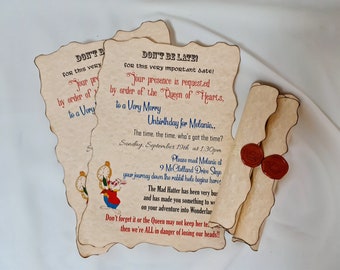 DON'T BE LATE!
for this very important date!
Your presence is requested
by order of the Queen of Hearts,
to a Very Merry
Unbirthday for Melanie..
The time, the time, who's got the time?
Sunday, September 19th at 1:30pm
Please meet Melanie at
9 McClelland Drive
your journey down the rabbit hole begins here
The Mad Hatter has been very bu
and has made you something to w
on your adventure into Wonderlan
Don't forget it or the Queen may not keep her te
then we're ALL in danger of losing our heads!!
DON'T B
for this ver
Your pres
by order o
to a